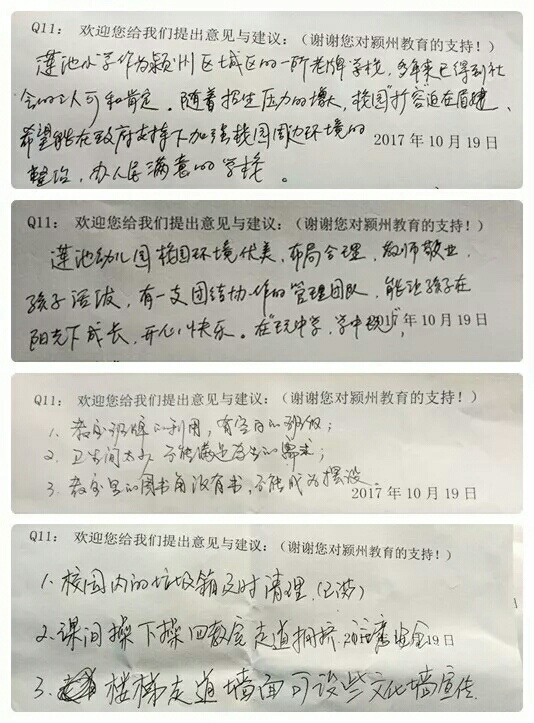 Q11: 欢迎您给我们提出意见与建议:(谢谢您对颍州教育的支持!)
莲池小学作为颍州区城区的一所老牌学校,多年来已得到社
会的认可和肯定。随着招生压力的增大,校园"扩容"迫在眉睫、
希望能在政府支持下加强校园周边环境的
2017年10月19日
整治,办人民满意的学校。
Q11: 欢迎您给我们提出意见与建议:(谢谢您对颍州教育的支持!)
莲池幼儿园校园环境优美,布局合理,教师敬业,
孩子活泼,有一支团结协作的管理团队,能让孩子在
阳光下成长,开心快乐。在"玩中学,学中玩",
2017年10月19日
Q11: 欢迎您给我们提出意见与建议:(谢谢您对颍州教育的支持!)
1、教室班牌的利用,有空白的班级;
2、卫生间太小,不能满足学生的需求;
3、教室里的图书角没有书,不能成为摆设。
2017年10月19日
Q11: 欢迎您给我们提出意见与建议:(谢谢您对颍州教育的支持!)
1、校园内的垃圾箱及时清理。
2、课间操下操回教室走道拥挤,注意安全
2017年10月19日
3、楼梯走道墙面可设些文化墙宣传.